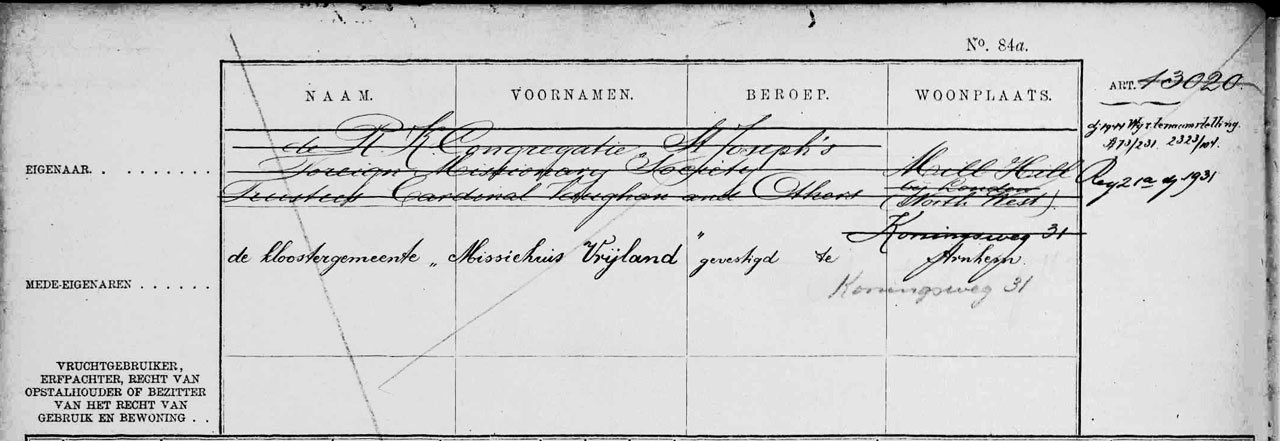 No. 84a.
NAAM. VOORNAMEN. BEROEP. WOONPLAATS.
ART. 13020
dj 1941 Wyz. tenaamstelling.
A 73/231. 2323/
de R. K. Congregatie St Joseph's
EIGENAAR. . . . . . . . . Foreign Missionary Society Mill Hill
by London
Trustees Cardinal Vaughan and Others (North West)
Reg 2 1931
Koningsweg 31
de kloostergemeente „Missiehuis Vrijland" gevestigd te Arnhem
MEDE-EIGENAREN . . . . . . Koningsweg 31
VRUCHTGEBRUIKER,
ERFPACHTER, RECHT VAN
OPSTALHOUDER OF BEZITTER
VAN HET RECHT VAN
GEBRUIK EN BEWONING . .